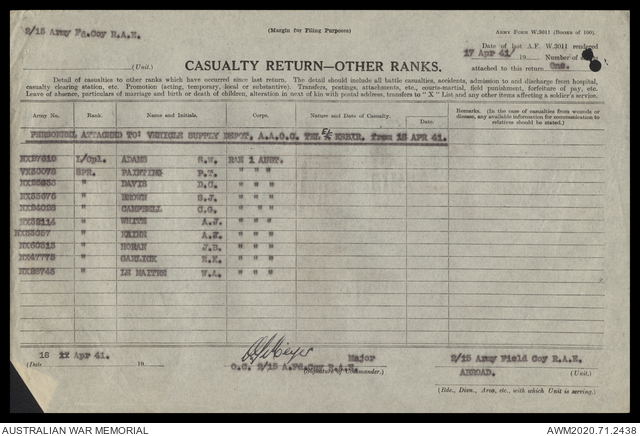 2/15 Army Fd.Coy R.A.E.
(Margin for Filing Purposes)
ARMY FORM W.3011 (BOOKS OF 100).
Date of last A.F. W.3011 rendered
17 Apr 41 19 Number of
(Unit.)
CASUALTY RETURN—OTHER RANKS.
attached to this return One.
Detail of casualties to other ranks which have occurred since last return. The detail should include all battle casualties, accidents, admission to and discharge from hospital,
casualty clearing station, etc. Promotion (acting, temporary, local or substantive). Transfers, postings, attachments, etc., courts-martial, field punishment, forfeiture of pay, etc.
Leave of absence, particulars of marriage and birth or death of children, alteration in next of kin with postal address, transfers to "X" List and any other items affecting a soldier's service.
Army No. Rank. Name and Initials. Corps. Nature and Date of Casualty. Date. Remarks. (In the case of casualties from wounds or disease, any available information for communication to relatives should be given.)
PERSONNEL ATTACHED TO: VEHICLE SUPPLY DEPOT, A.A.O.C. TEL EL KEBIR. from 18 APR 41.
L/Cpl. ADAMS R.W. RAE 1 AUST.
SPR. PAINTING P.T. " " "
" DAVIS D.C. " " "
" BROWN S.J. " " "
" CAMPBELL C.G. " " "
" WHITE A.J. " " "
" A.E. " " "
NX60313 " HORAN J.B. " " "
NX47773 " GARLICK " " "
" LE MAITRE W.A. " " "
18 Apr 41.
(Date 19
Major
O.C. 2/15 A.Fd.Coy R.A.E.
(Signature of Commander.)
2/15 Army Field Coy R.A.E.
ABROAD. (Unit.)
(Bde., Divn., Area, etc., with which Unit is serving.)
AUSTRALIAN WAR MEMORIAL
AWM2020.71.2438